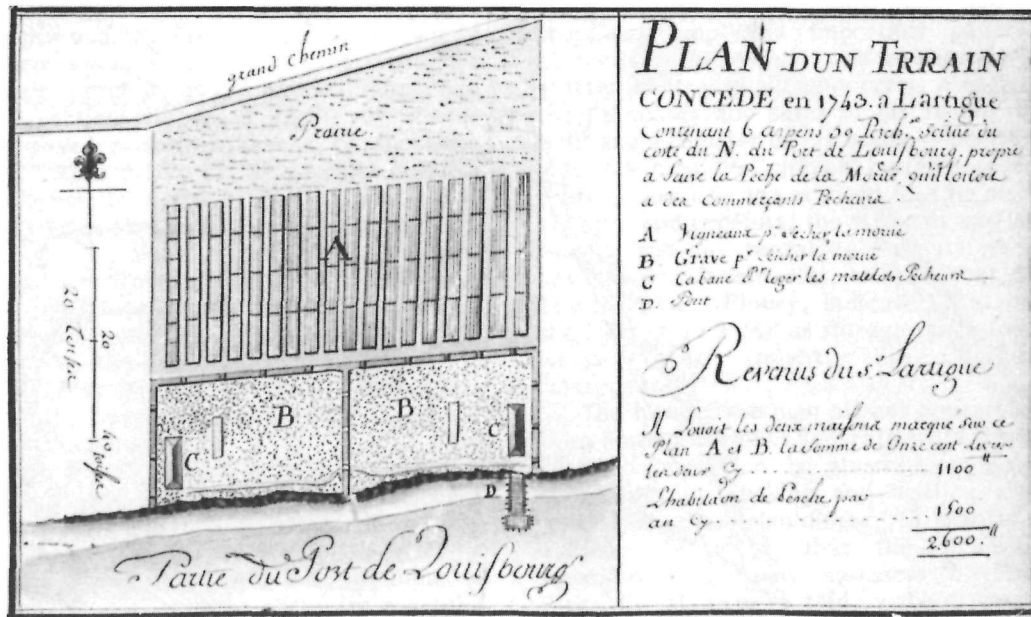 grand chemin
Prairie
A
B
B
C
C
D
20
40 toises
Partie du Port de Louisbourg
PLAN DUN TRRAIN
CONCEDE en 1743. a Lartigue
Contenant 6 arpens 59 Perch. Scitué du
costé du N. du Port de Louisbourg, propre
a faire la Peche de la Morue, quil loüoit
a des Commerçants Pecheurs
A Vigneaux pr. secher la morüe
B Grave pr. secher la morüe
C Cabane pr. loger les matelots Pecheurs
D Pont
Revenus du s. Lartigue
Il Loüoit les deux maisons marqué sur ce
Plan A et B. la Somme de Onze cent Livres
les deux Cy ........ 1100"
L'habitaon de Pesche par
an Cy 1500
2600."